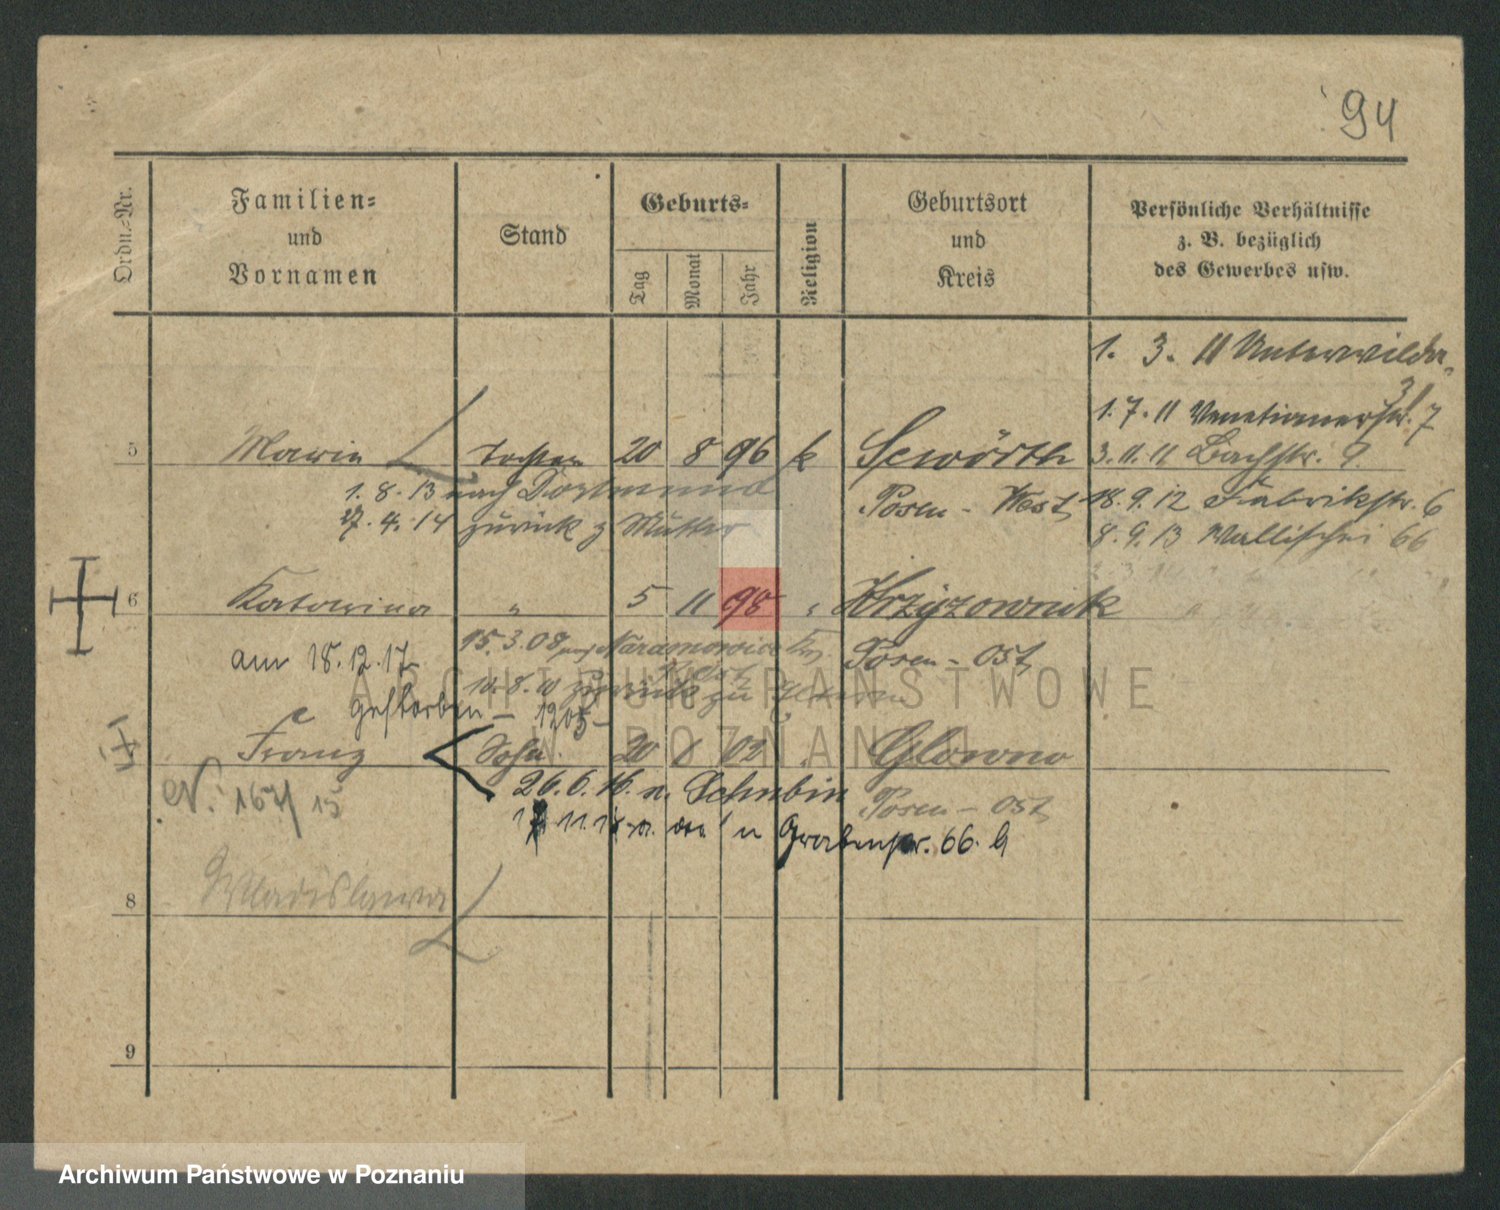 94
Ordn.-Nr.
Familien-
und
Vornamen
Stand
Geburts-
Tag
Monat
Jahr
Religion
Geburtsort
und
Kreis
Persönliche Verhältnisse
z. B. bezüglich
des Gewerbes usw.
1. 3. 11 Unterwilda
31
1. 7. 11 Venetianerstr. 7
5 Maria Tochter 20 8 96 k 3. 11. 11 Bachstr. 9
1. 8. 13 nach Dortmund
Posen - West 18. 9. 12 Fabrikstr. 6
27. 4. 14 zurück z Mutter
8. 9. 13 Wallischei 66
6 Katarina " 5 11 98 " Krzyzownik
am 18. 12. 17 15. 3. 08 Naramowice
Posen - Ost
10. 8. 10 zurück zu
gestorben - 1205 -
Franz Sohn 20 1 02 Glowno
26. 6. 16. n. Schubin
Posen - Ost
Grabenstr. 66.
8 Wladislawa
9
ARCHIWUM PAŃSTWOWE
W POZNANIU
Archiwum Państwowe w Poznaniu